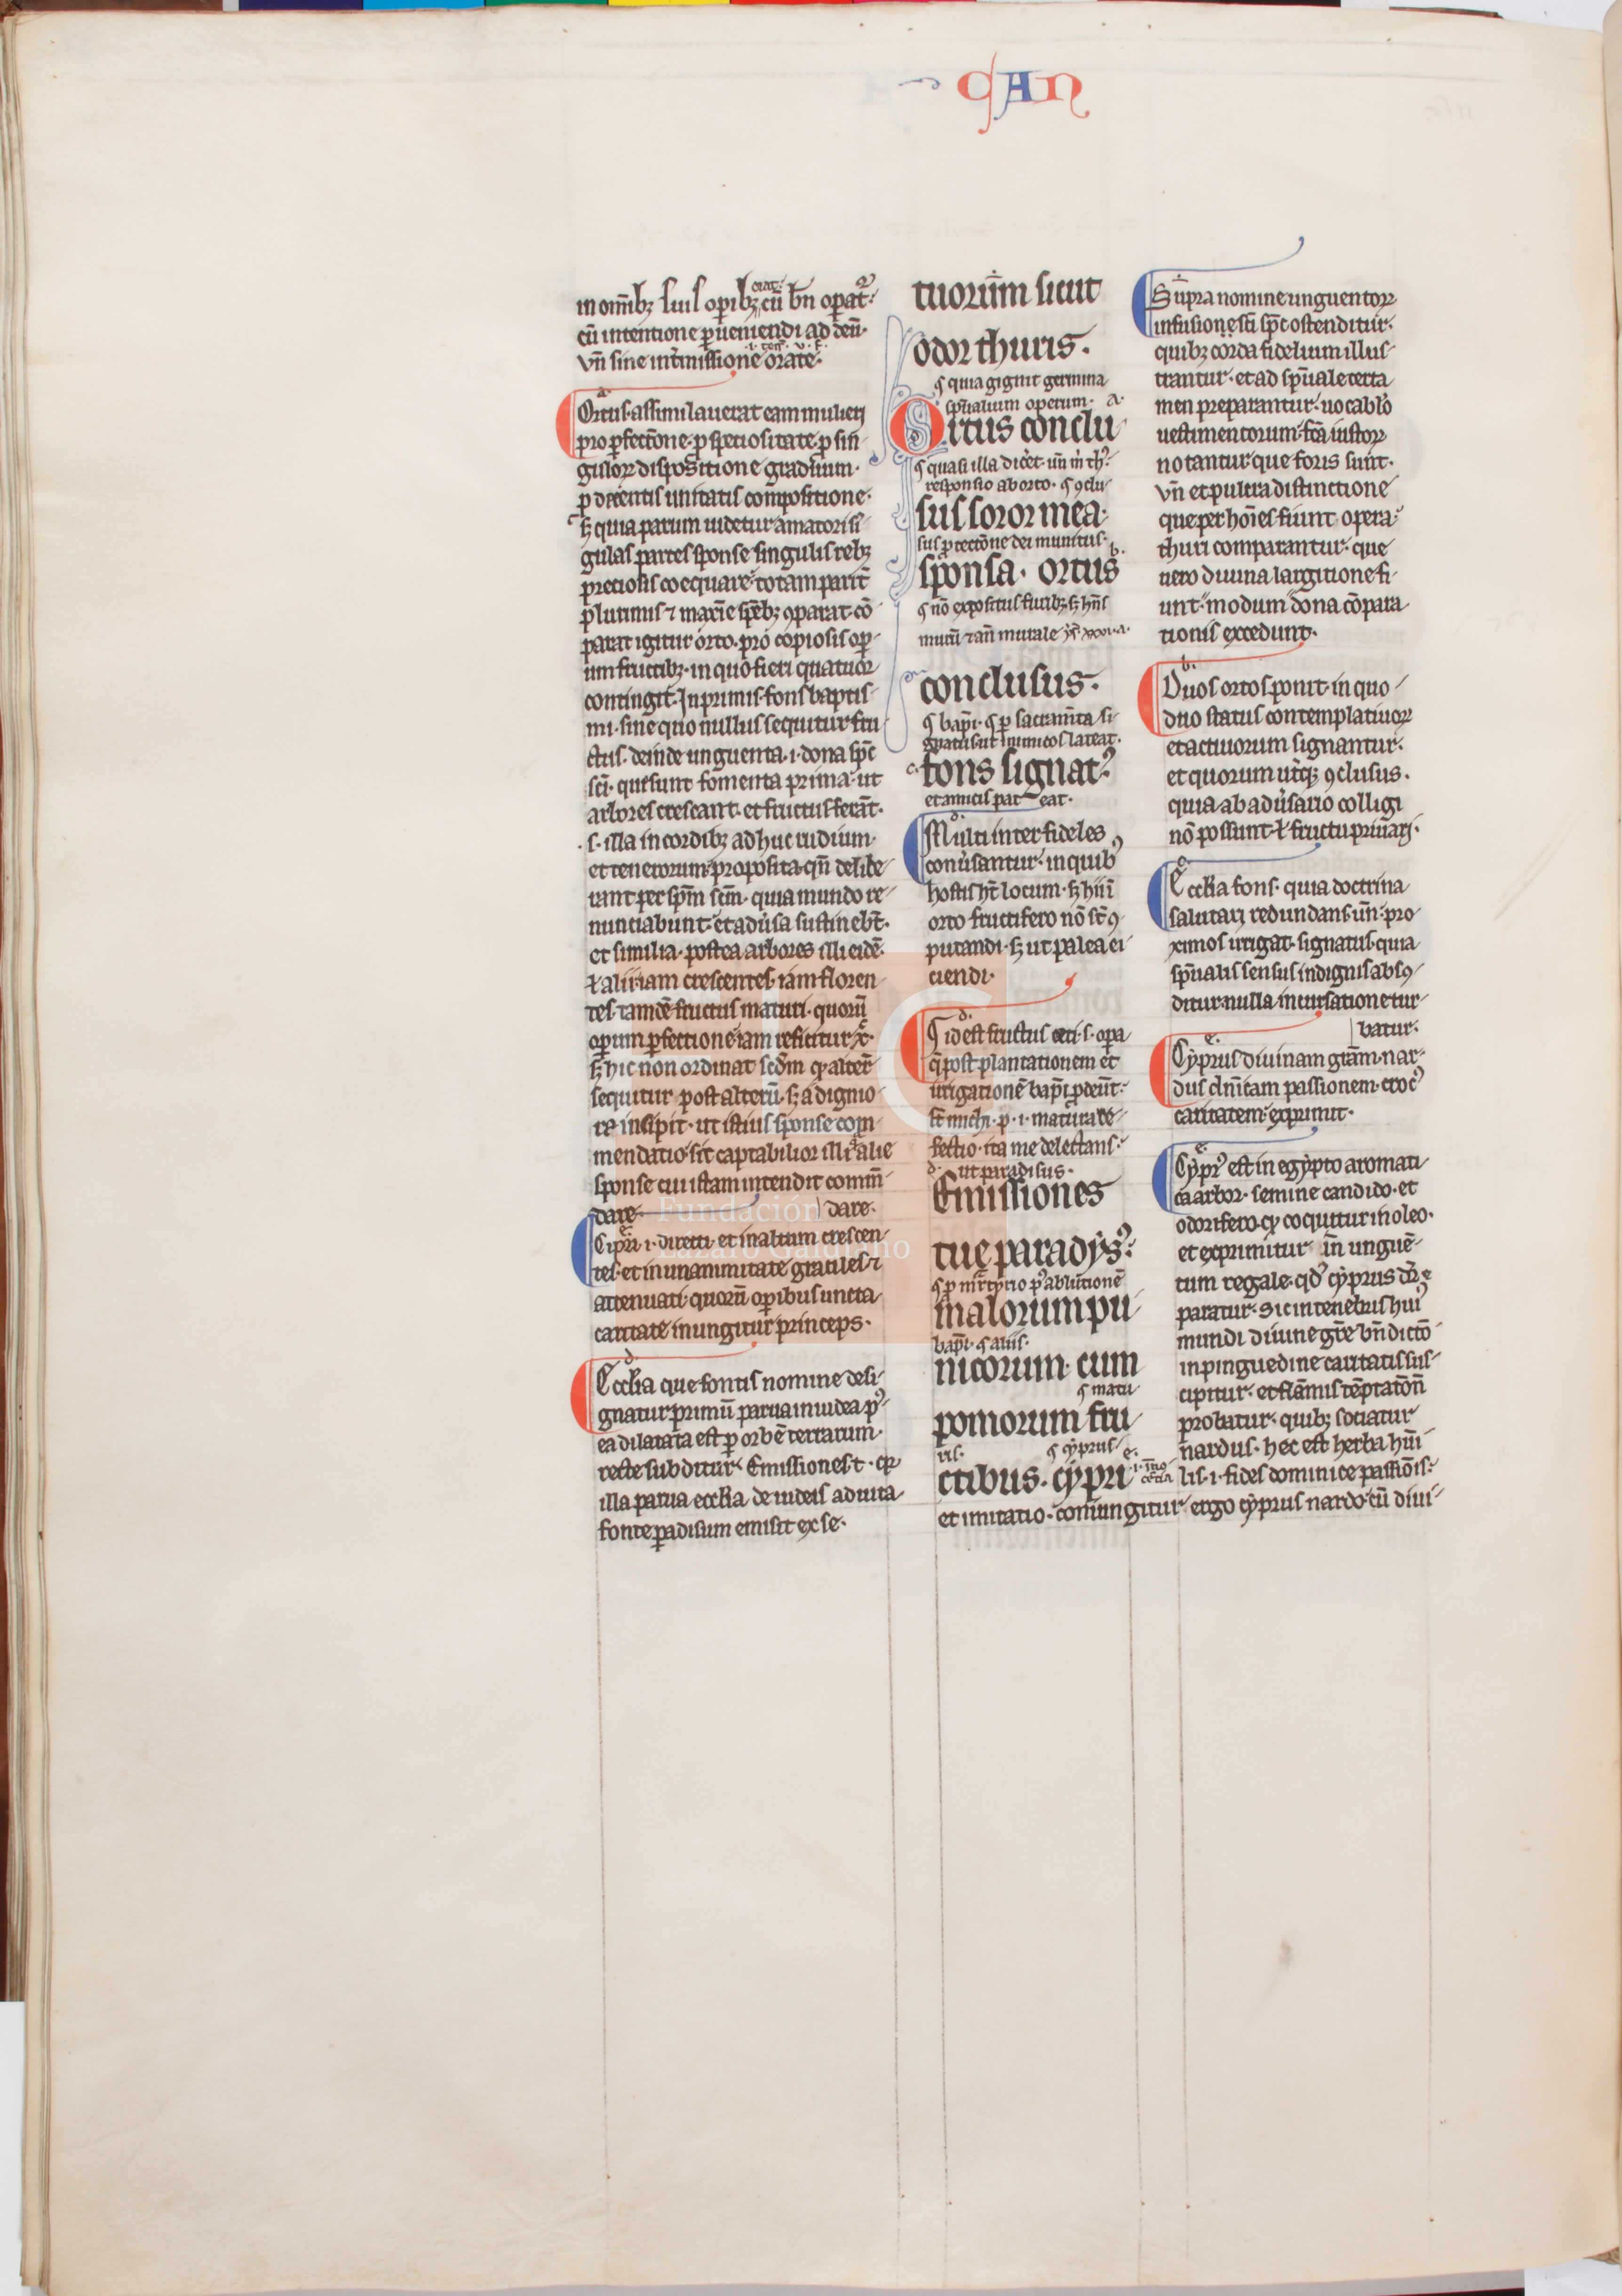 CAN
in om̄ibꝫ suis oꝑibꝫ cū bn̄ oꝑat᷑.
cū intentione ꝑueniendi ad deū.
vn̄ sine int̄missione orate.
Ortus. assimilauerat eam mulieri
pro ꝑfectōne. ꝓ speciositate. ꝓ sin
guloꝝ dispositione graduum.
ꝓ decentis unitatis compositione.
sꝫ quia parum uidetur amatori si
gulas partes sponse singulis rebꝫ
preciosis coequare. totam parit̄
plurimis ⁊ maxīe spēbꝫ ꝯparat. cō
parat igitur orto. pro copiosis oꝑ
um fructibꝫ. in quo fieri quatuor
contingit. In primis. fons baptis
mi. sine quo nullus sequitur fru
ctus. deinde unguenta .i. dona spc̄
sc̄i. que sunt fomenta prima. ut
arbores crescant. et fructus ferāt.
.s. illa in cordibꝫ adhuc rudium.
et tenerorum. proposita. qn̄ delibe
rant per spm̄ scm̄. quia mundo re
nunciabunt. et adūsa sustinebt̄.
et similia. postea arbores illi eidē.
ł alii iam crescentes. iam floren
tes. tamdē fructus maturi. quorū
oꝑum ꝑfectione iam reficitur xc̄.
sꝫ hic non ordinat scdm̄ qꝫ alter̄
sequitur post alterū. sꝫ a dignio
re insipit. ut istius sponse com
mendatio sit captabilior illi alie
sponse cui istam intendit comm̄
dare. dare.
Cipri .i. directi. et in altum crescen
tes. et in unanimitate graciles. ⁊
attenuati. quorū oꝑibus uncta
caritate inungitur princeps.
Eccłia que fontis nomine desi
gnatur. primū parua in iudea. pꝰ
ea dilatata est ꝑ orbē terrarum.
recte subditur. Emissiones t. qꝛ
illa parua eccłia de iudeis ad uita
fonte ꝑadisum emisit ex se.
tuorum sicut
odor thuris.
quia gignit germina
spūalium operum. a.
Ortus conclu
quasi illa dicet. un̄
responsio ab orto. ꝯclu
sus soror mea.
sus ꝓtectōne dei munitus.
sponsa. ortus
nō expositus furibꝫ. sꝫ hn̄s
murū ⁊ an̄ murale
conclusus.
bapī. ꝑ sacramīta si
gnatus. ut inimicos lateat.
fons signatꝰ.
et amicis pateat.
Multi inter fideles
conūsantur. in quibꝰ
hostis ht̄ locum. sꝫ hii ī
orto fructifero nō st̄ ꝯ
putandi. sꝫ ut palea ei
ciendi.
Id est fructus .s. oꝑa
q̄ post plantationem et
irrigationē bapī ꝓdeūt.
st̄ michi .p. i. matura re
fectio. ita me delectans.
ut paradisus.
Emissiones
tue paradysꝰ.
ꝑ martyrio pꝰ ablutionē
malorum pu
bapī. aliis.
nicorum. cum
matu
pomorum fru
ris. cyprus.
ctibus. cypri
et imitatio. coniungitur ergo cyprus nardo. cū diui
Supra nomine unguentoꝝ
infusione sc̄i spc̄ ostenditur.
quibꝫ corda fidelium illus
trantur. et ad spūale certa
men preparantur. uocablo
uestimentorum. fc̄a iustoꝝ
notantur que foris sunt.
vn̄ et pulcra distinctione
que per hoīes fiunt opera.
thuri comparantur. que
uero diuina largitione fi
unt. modum dona cōpara
tionis excedunt.
Duos ortos ponit. in quo
duo status contemplatiuoꝝ
et actiuorum signantur.
et quorum ut̄qꝫ ꝯclusus.
quia ab adūsario colligi
nō possunt. ł fructu priuari.
Eccłia fons. quia doctrina
salutari redundans. un̄ pro
ximos irrigat. signatus. quia
spūalis sensus indignis absꝯ
ditur. nulla incursatione tur
batur.
Cyprus diuinam grām. nar
dus dn̄icam passionem. crocꝰ
caritatem. exprimit.
Cyprꝰ est in egypto aromati
ca arbor. semine candido. et
odorifero. qꝫ coquitur in oleo.
et exprimitur in unguē
tum regale. qd̓ cyprus dr̄. ⁊
paratur. sic in tenebris huiꝰ
mundi diuine gr̄e bn̄dictō
in pinguedine caritatis sus
cipitur. et flāmis tēptatōn̄
probatur. quibꝫ sociatur
nardus. hec est herba hūi
lis .i. fides dominice passiōis.
Fundación
Lázaro Galdiano